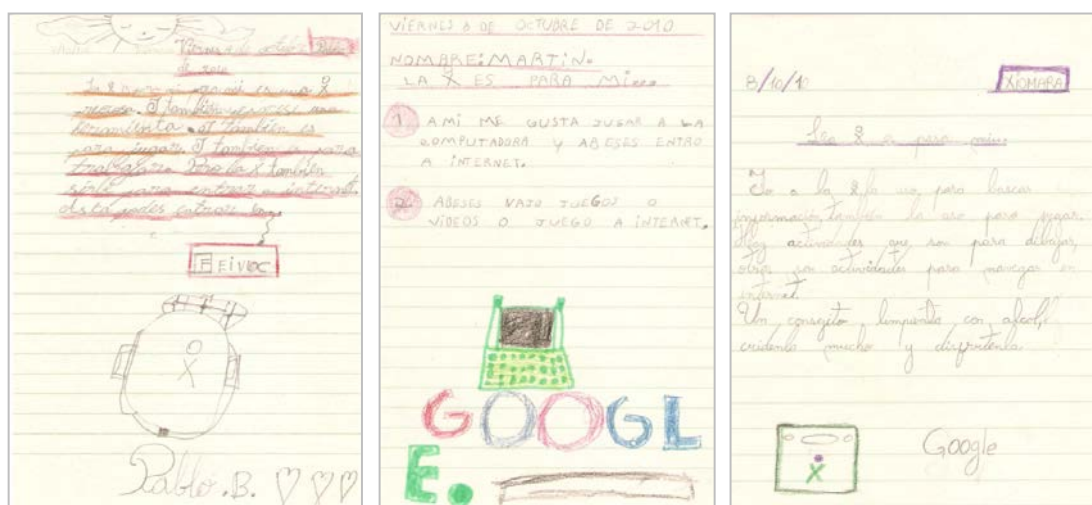 Viernes de octubre
de 2010
La X para mi es una X
remosa. I también es
herramienta. I también es
para jugar. I también a para
trabajar. Pero la X también
sirbe para entrar a internet.
Asta podes entrar en
F EIVOC
X
Pablo.B.
VIERNES 8 DE OCTUBRE DE 2010
NOMBRE: MARTIN.
LA X ES PARA Mi...
1. A Mi ME GUSTA JUGAR A LA
COMPUTADORA Y ABESES ENTRO
A INTERNET.
2. ABESES VAJO JUEGOS O
VIDEOS O JUEGO A INTERNET.
GOOGL
E.
8/10/10
XIOMARA
La X es para mi...
Yo a la X la uso, para buscar
información, también la uso para jugar.
Hay actividades que son para dibujar,
otras son actividades para navegar en
internet.
Un consejito limpienla con alcol,
cuidenla mucho y disfrutenla.
X
Google